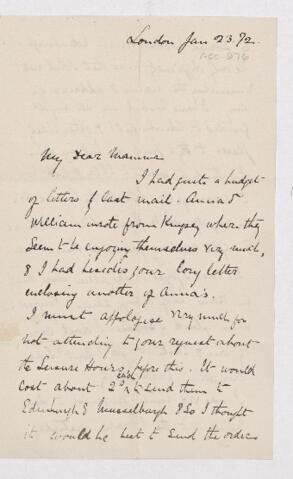 London Jan 23. 72.
My Dear Mamma
I had quite a budget
of letters by last mail. Anna &
William wrote from where they
seem to be enjoying themselves very much,
& I had besides your long letter
enclosing another of Anna's.
I must appologise very much for
not attending to your request about
the Leisure Hours before this. It would
cost about 2 each to send them to
Edinburgh & Musselburgh & So I thought
it would be best to send the orders